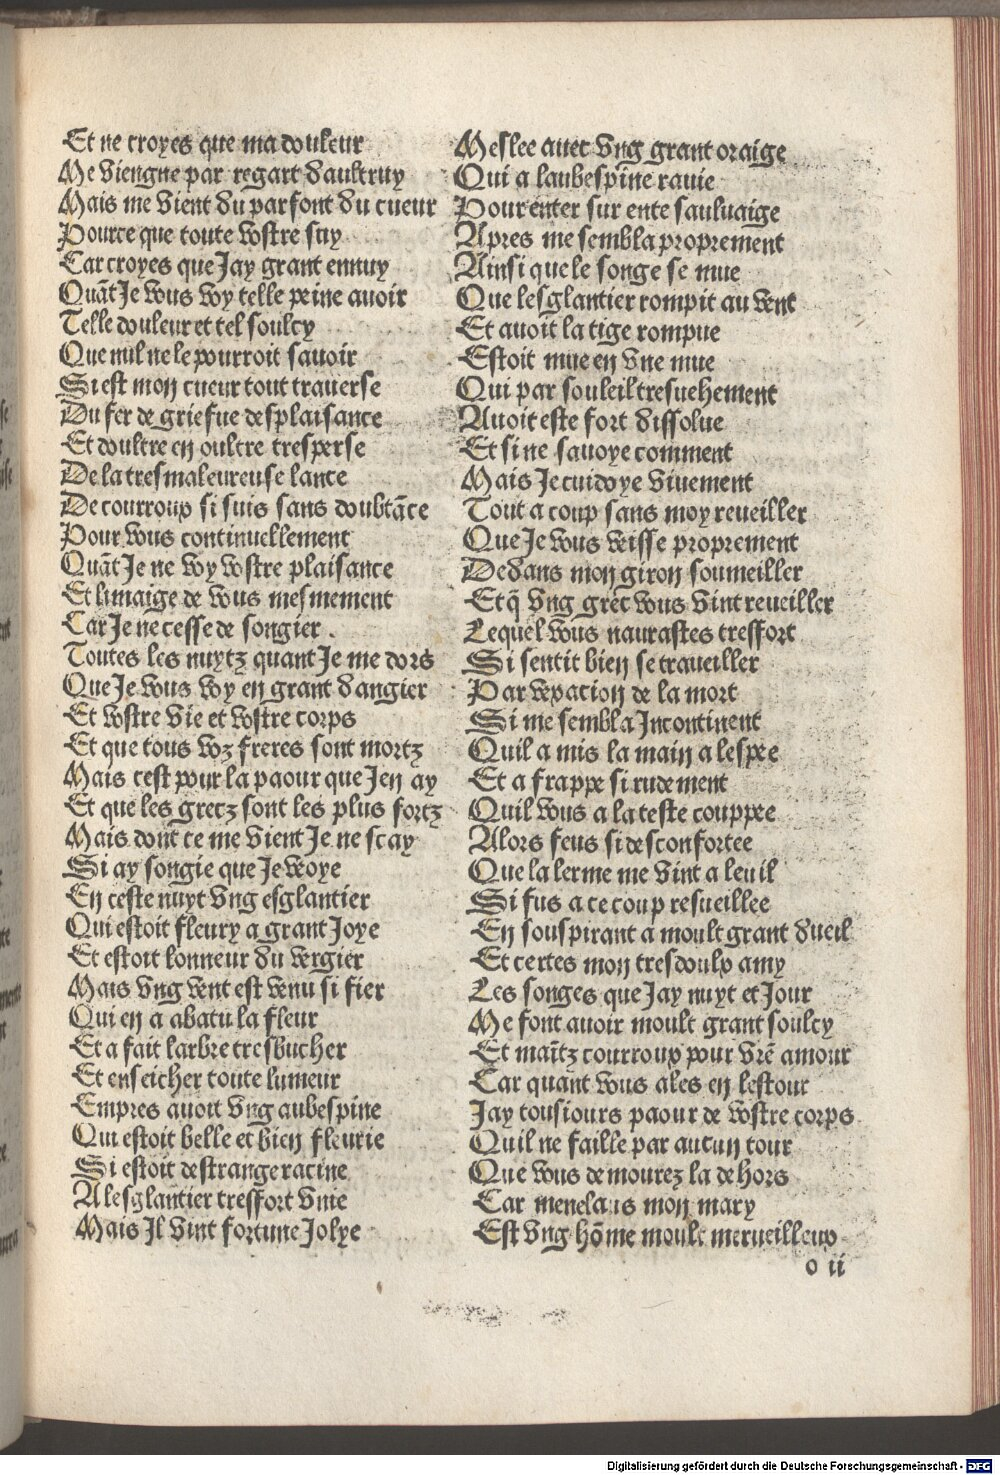 Et ne croyes que ma douleur
Me viengne par regart daultruy
Mais me vient du parfont du cueur
Pource que toute vostre suy
Car croyes que Jay grant ennuy
Quāt Je vous voy telle peine auoir
Telle douleur et tel soulcy
Que nul ne le pourroit sauoir
Si est mon cueur tout trauerse
Du fer de griefue desplaisance
Et doultre en oultre tresperse
De la tresmaleureuse lance
De courroux si suis sans doubtāce
Pour vous continuellement
Quāt Je ne voy vostre plaisance
Et limaige de vous mesmement
Car Je ne cesse de songier .
Toutes les nuytz quant Je me dors
Que Je vous voy en grant dangier
Et vostre vie et vostre corps
Et que tous voz freres sont mortz
Mais cest pour la paour que Jen ay
Et que les grecz sont les plus fortz
Mais dont ce me vient Je ne scay
Si ay songie que Je veoye
En ceste nuyt vng esglantier
Qui estoit fleury a grant Joye
Et estoit lonneur du vergier
Mais vng vent est venu si fier
Qui en a abatu la fleur
Et a fait larbre tresbucher
Et enseicher toute lumeur
Empres auoit vng aubespine
Qui estoit belle et bien fleurie
Si estoit destrange racine
A lesglantier tresfort vnie
Mais Il vint fortune Jolye
Meslee auec vng grant oraige
Qui a laubespine rauie
Pour enter sur ente sauluaige
Apres me sembla proprement
Ainsi que le songe se mue
Que lesglantier rompit au vent
Et auoit la tige rompue
Estoit mue en vne mue
Qui par souleil tresuehement
Auoit este fort dissolue
Et si ne sauoye comment
Mais Je cuidoye viuement
Tout a coup sans moy reueiller
Que Je vous veisse proprement
Dedans mon giron soumeiller
Et q̄ vng grec vous vint reueiller
Lequel vous naurastes tresfort
Si sentit bien se traueiller
Par vexacion de la mort
Si me sembla Incontinent
Quil a mis la main a lespee
Et a frappe si rudement
Quil vous a la teste couppee
Alors feus si desconfortee
Que la lerme me vint a leuil
Si fus a ce coup resueillee
En souspirant a moult grant dueil
Et certes mon tresdoulx amy
Les songes que Jay nuyt et Jour
Me font auoir moult grant soulcy
Et mait̄z courroux pour vr̄e amour
Car quant vous ales en lestour
Jay tousiours paour de vostre corps
Quil ne faille par aucun tour
Que vous demourez la dehors
Car menelaus mon mary
Est vng hōme moult merueilleux
o ii
Digitalisierung gefördert durch die Deutsche Forschungsgemeinschaft - DFG